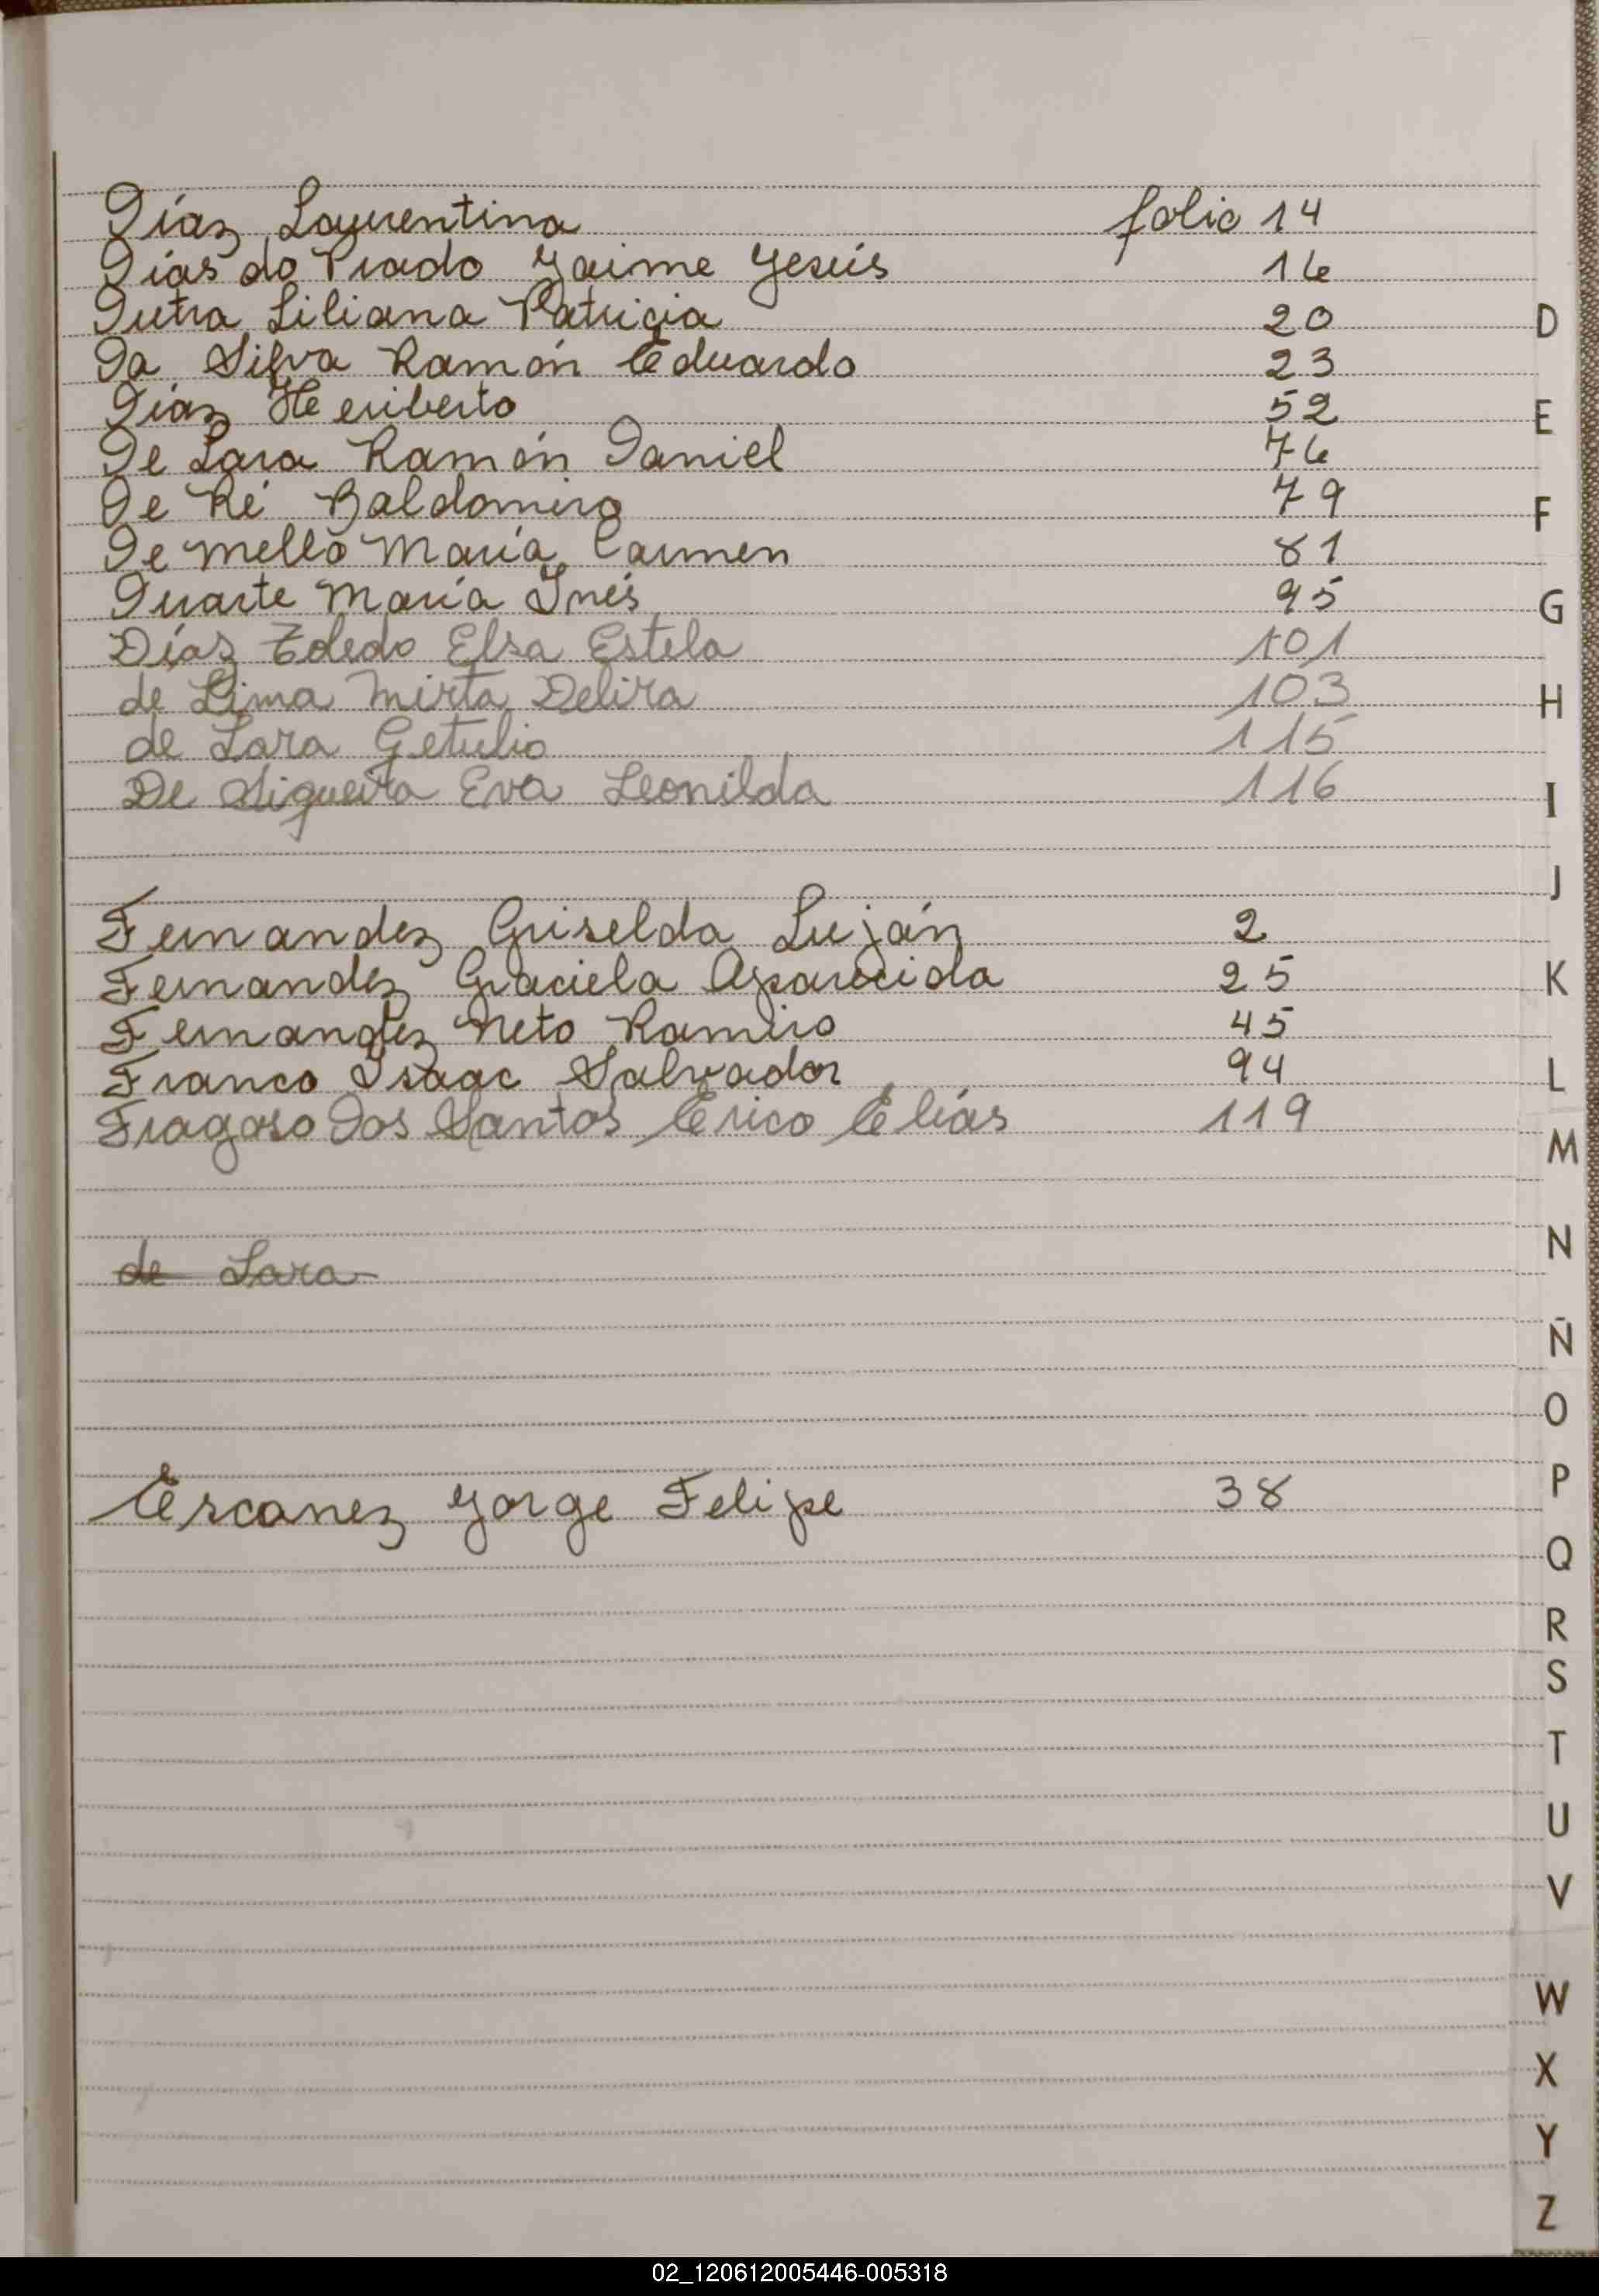 Díaz Laurentina folio 14
Días do Prado Jaime Jesús 16
Dutra Liliana Patricia 20
Da Silva Ramón Eduardo 23
Díaz Heriberto 52
De Lara Ramón Daniel 76
De Ré Baldomiro 79
De mello María Carmen 81
Duarte María Inés 95
Díaz Toledo Elsa Estela 101
de Lima Mirta Delira 103
de Lara Getulio 115
De Siqueira Eva Leonilda 116
Fernandez Griselda Luján 2
Fernandez Graciela Aparecida 25
Fernandez Neto Ramiro 45
Franco Isaac Salvador 94
Fragoso Dos Santos Erico Elías 119
de Lara
Escanez Jorge Felipe 38
D
E
F
G
H
I
J
K
L
M
N
Ñ
O
P
Q
R
S
T
U
V
W
X
Y
Z
02_120612005446-005318